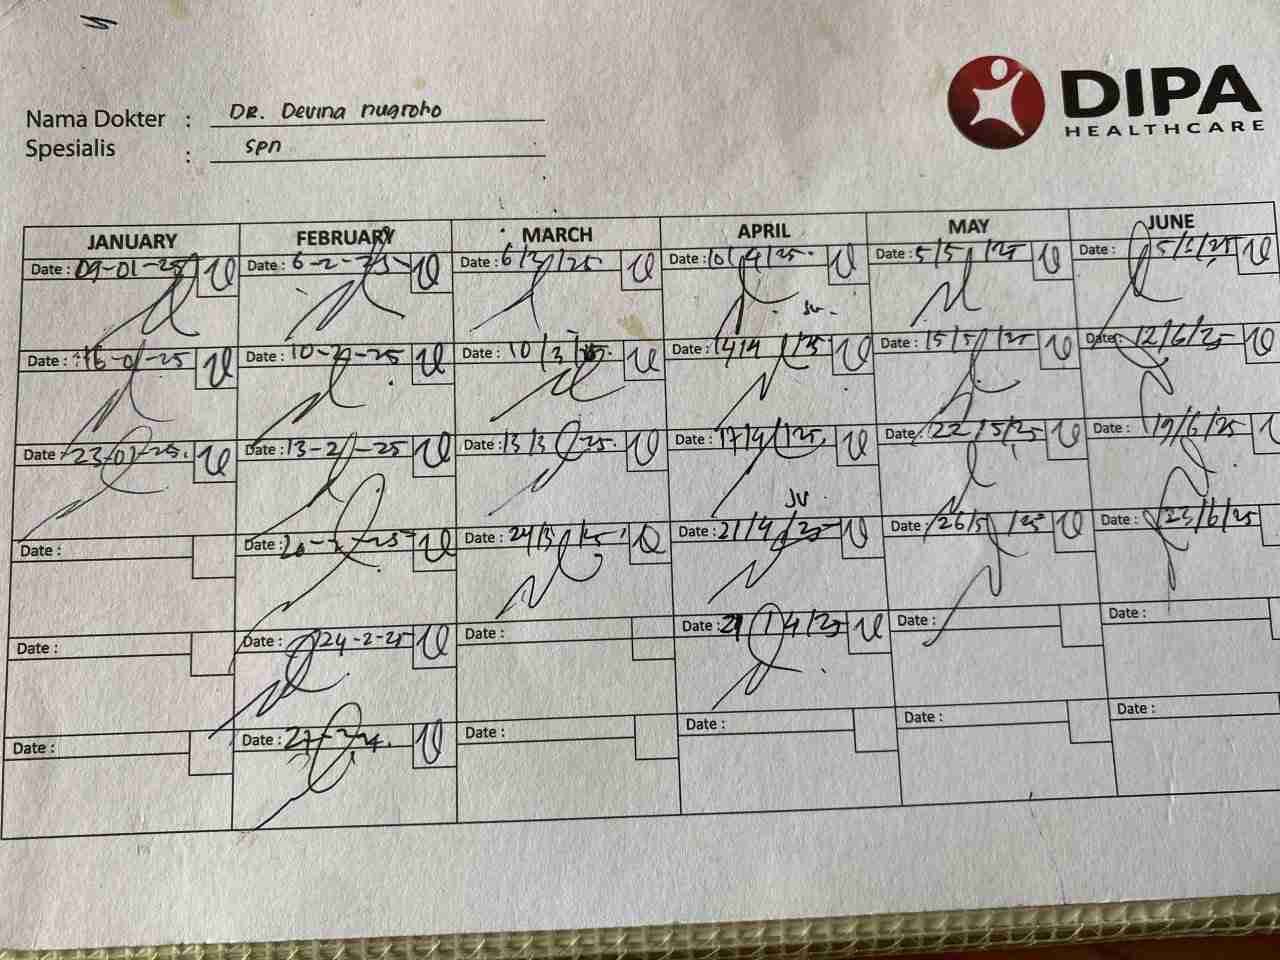 DIPA
HEALTHCARE
Nama Dokter : DR. Devina nugroho
Spesialis : spn
JANUARY FEBRUARY MARCH APRIL MAY JUNE
Date : 09-01-25 Date : 6-2-25 Date : 6/3/25 Date : 10/4/25 Date : 5/5/25 Date : 5/ /25
Date : 16-01-25 Date : 10-2-25 Date : 10/3/25 Date : 14/4/25 Date : 15/5/25 Date : 12/6/25
Date : 23-01-25 Date : 13-2-25 Date : 13/3/25 Date : 17/4/25 Date : 22/5/25 Date : 19/6/25
JV
Date : Date : 20-2-25 Date : 24/3/25 Date : 21/4/25 Date : 26/5/25 Date : 23/6/25
Date : Date : 24-2-25 Date : Date : /4/25 Date : Date :
Date : Date : Date : Date : Date : Date :